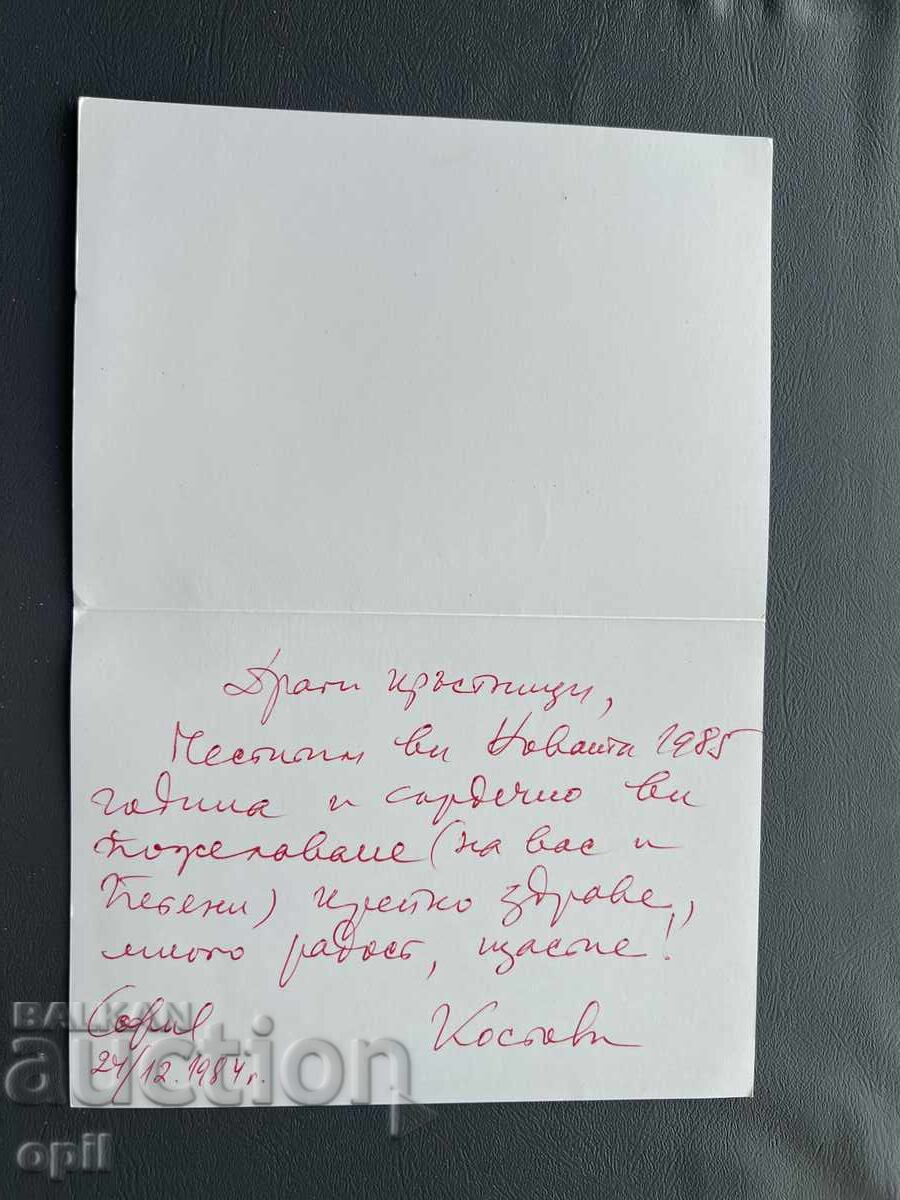 Драги кръстници,
Честитим ви Новата 1985
година и сърдечно ви
пожелаваме (на вас и
) крепко здраве,
много радост, щастие!
София Костови
24/12.1984 г.
BALKAN
auction
opil